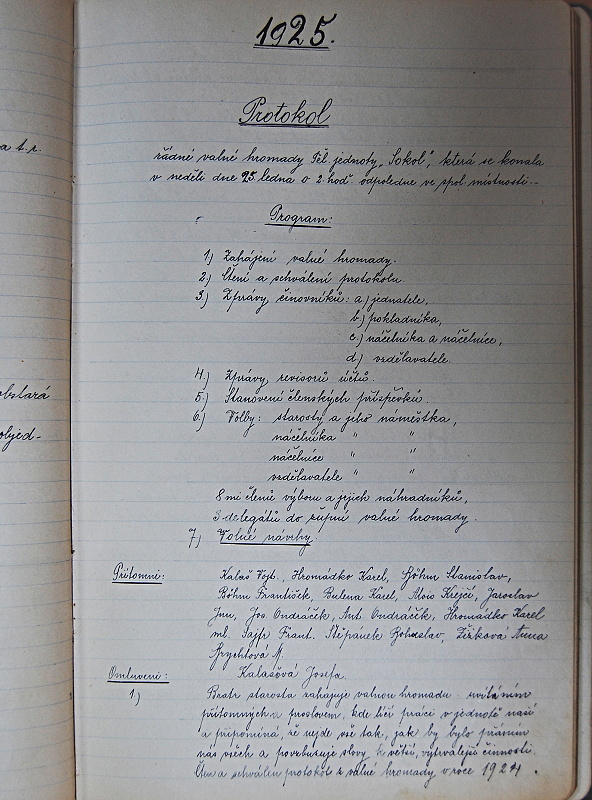 1925.
Protokol
řádné valné hromady Těl. jednoty „Sokol", která se konala
v neděli dne 25. ledna o 2. hod. odpoledne ve spol. místnosti.
Program:
1.) Zahájení valné hromady.
2.) Čtení a schválení protokolu.
3.) Zprávy činovníků: a.) jednatele,
b.) pokladníka,
c.) náčelníka a náčelnice,
d.) vzdělavatele.
4.) Zprávy revisorů účtů.
5.) Stanovení členských příspěvků.
6.) Volby: starosty a jeho náměstka,
náčelníka " "
náčelnice " "
vzdělavatele " "
8 mi členů výboru a jejich náhradníků,
3 delegátů do župní valné hromady.
7.) Volné návrhy.
Přítomni: Kalaš Vojt., Hromádko Karel, Böhm Stanislav,
Böhm František, Bulena Karel, Alois Krejčí, Jaroslav
Jos. Ondráček, Ant. Ondráček, Hromádko Karel
ml. Sajfr Frant. Štěpánek Bohuslav, Žižková Anna
Brychtová M.
Omluveni: Kalašová Josefa.
1.) Bratr starosta zahajuje valnou hromadu uvítáním
přítomných a proslovem, kde líčí práci v jednotě naší
a připomíná, že nejde vše tak, jak by bylo přáním
nás všech a povzbuzuje slovy k větší, vytrvalejší činnosti.
Čten a schválen protokol z valné hromady v roce 1924.
a t. r.
obstará
objed-